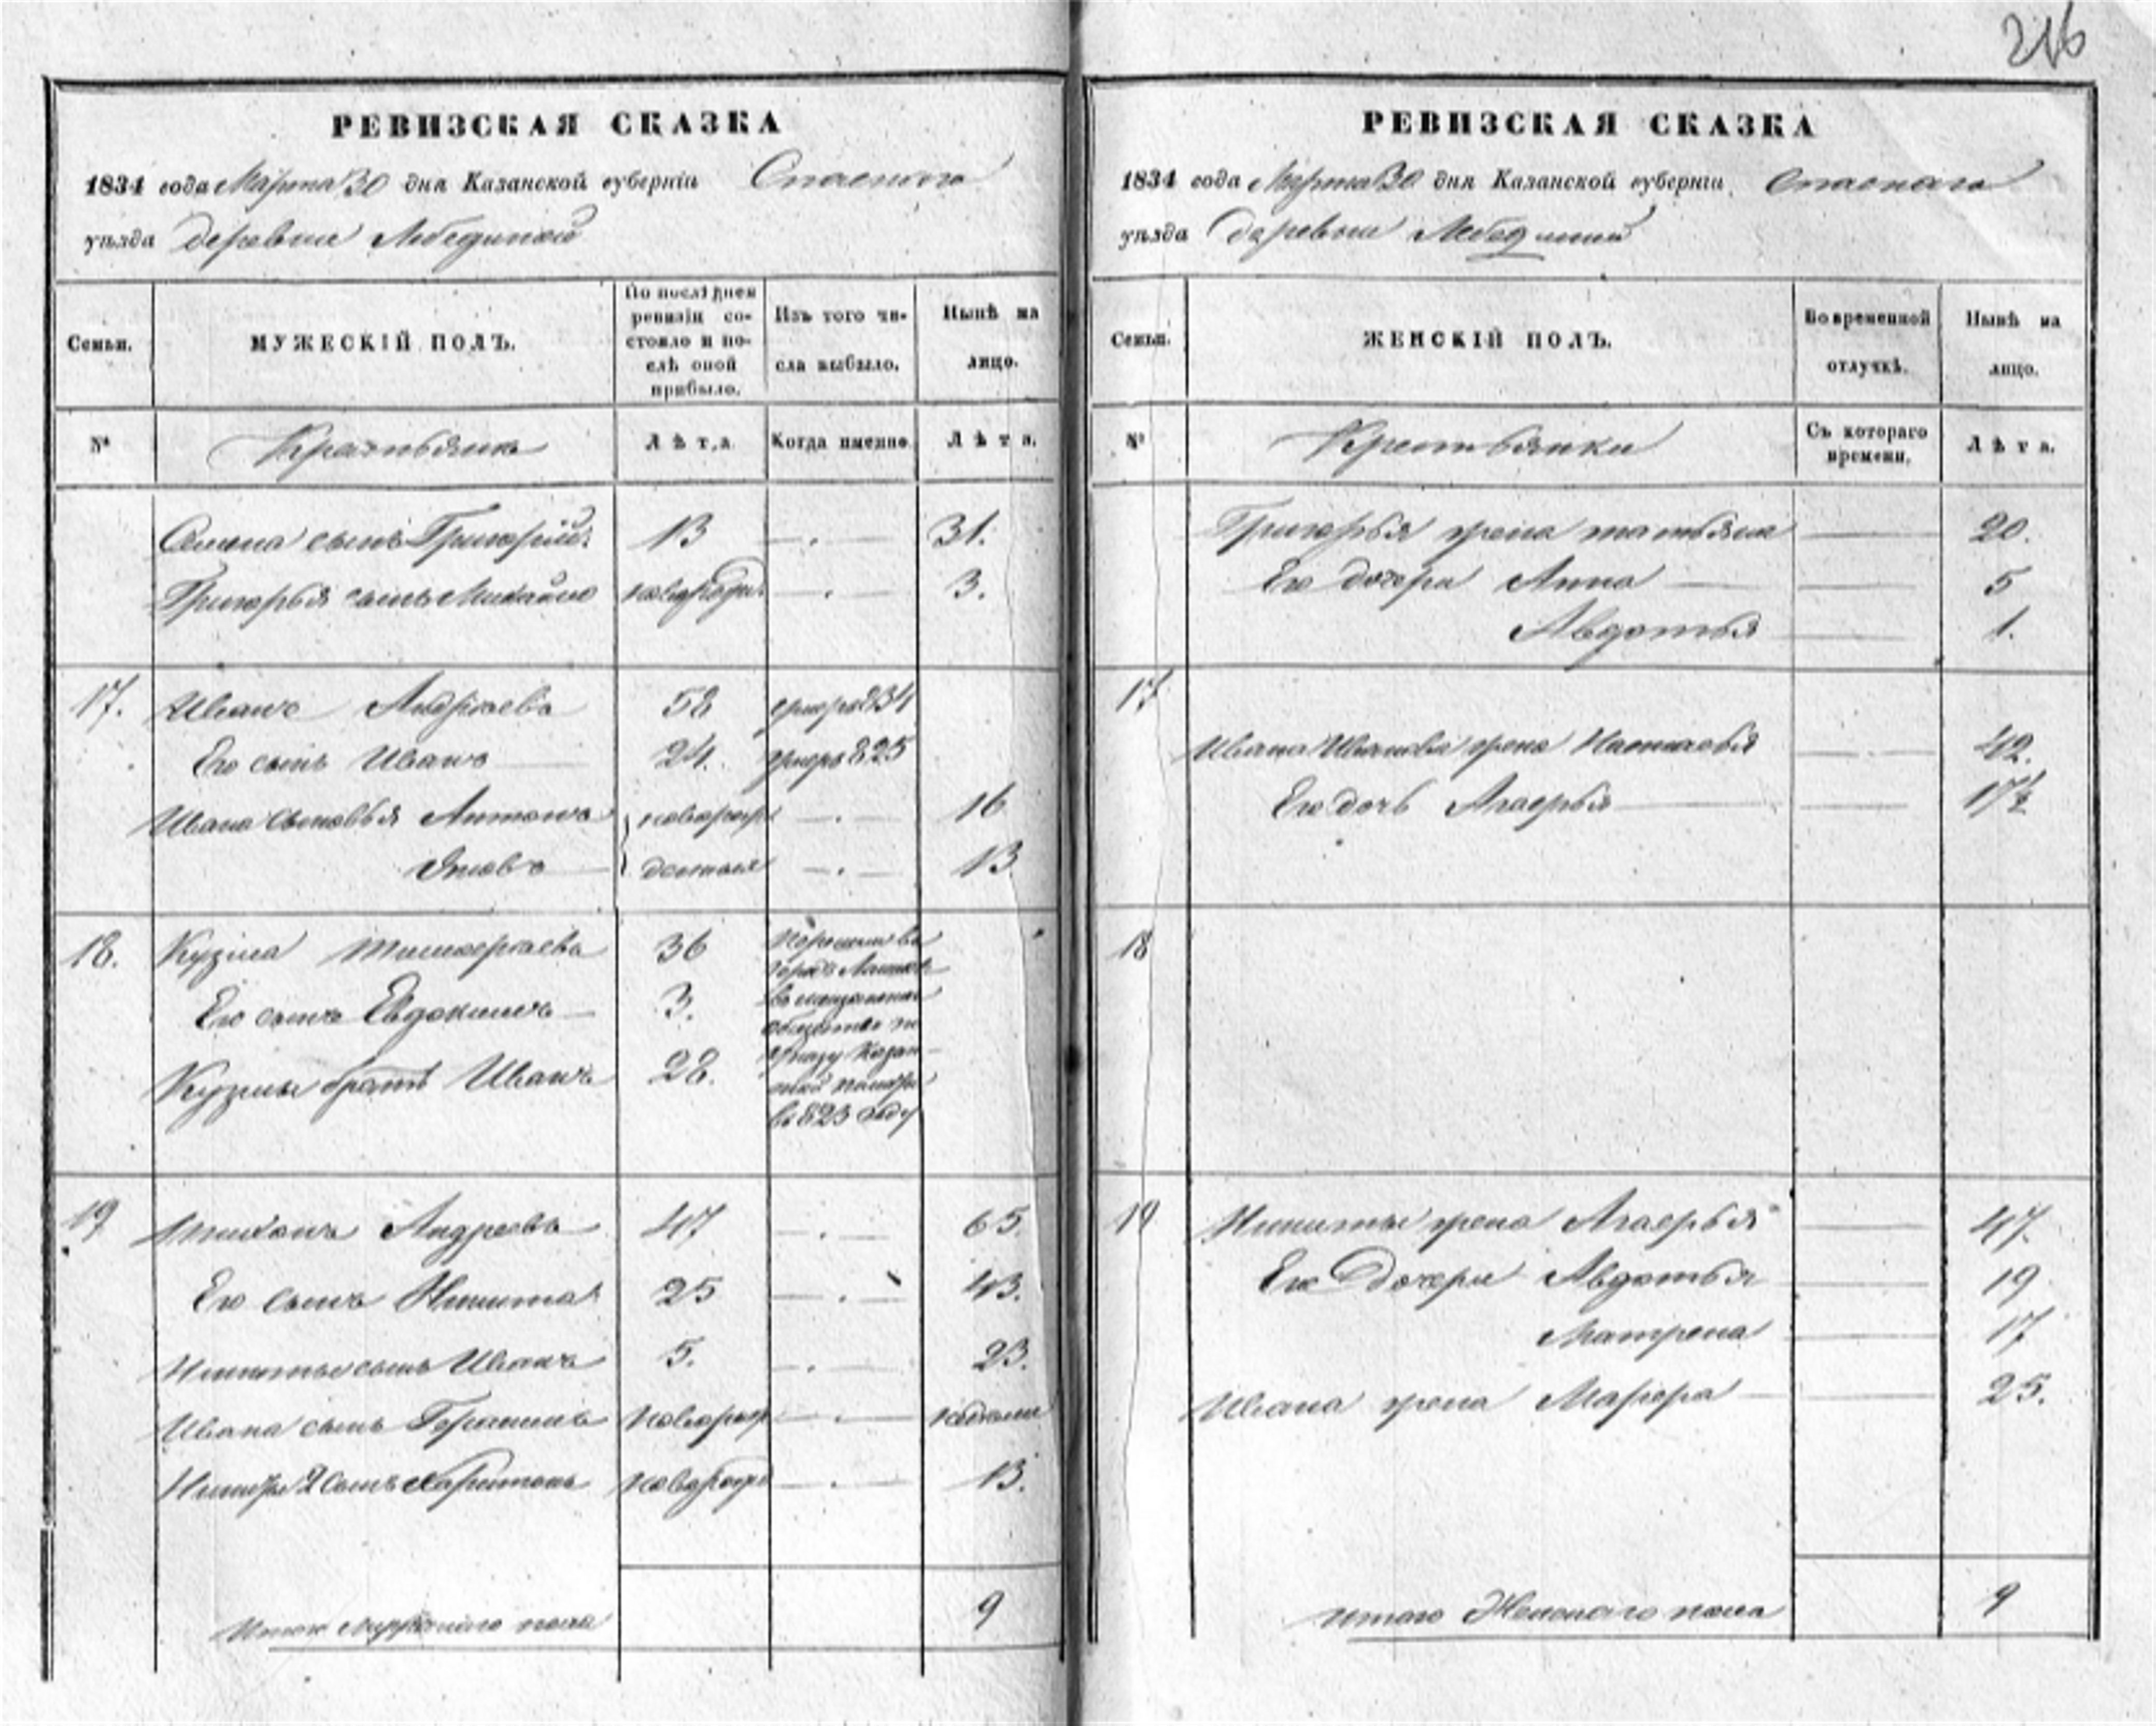 216
РЕВИЗСКАЯ СКАЗКА
1834 года Марта 30 дня Казанской губерніи Спаского
уѣзда деревни Лебединой
Семьи.
МУЖЕСКІЙ ПОЛЪ.
По послѣдней ревизіи состояло и послѣ оной прибыло.
Изъ того числа выбыло.
Нынѣ на лицо.
№
Крестьяне
Лѣта.
Когда именно.
Лѣта.
сынъ Григорій 13 31.
Григорья сынъ Михайло новорожд 3.
17. Иванъ Андреевъ 58 834
Его сынъ Иванъ 24. 825
Ивана сыновья Антонъ новорож 16
Яковъ 13
18. Кузма 36
Его сынъ Евдокимъ 3.
Кузмы братъ Иванъ 28.
въ мещанское
общество по
указу Казан
въ 823 году
19 Андреевъ 47 65.
Его сынъ Никита 25 43.
Никиты сынъ Иванъ 5. 23.
Ивана сынъ новорож
Никиты 2 сынъ Харитонъ новорож 13.
Итого Мужескаго пола 9
РЕВИЗСКАЯ СКАЗКА
1834 года Марта 30 дня Казанской губерніи Спаскаго
уѣзда деревни Лебединой
Семьи.
ЖЕНСКІЙ ПОЛЪ.
Во временной отлучкѣ.
Нынѣ на лицо.
№
Крестьянки
Съ котораго времени.
Лѣта.
Григорья жена татьяна 20.
Его дочери Анна 5
Авдотья 1.
17
Ивана Иванова жена Настасья 42.
Его дочь 17½
18
19 Никиты жена 47.
Его Дочери Авдотья 19
Матрена 17
Ивана жена 25.
итого Женскаго пола 9